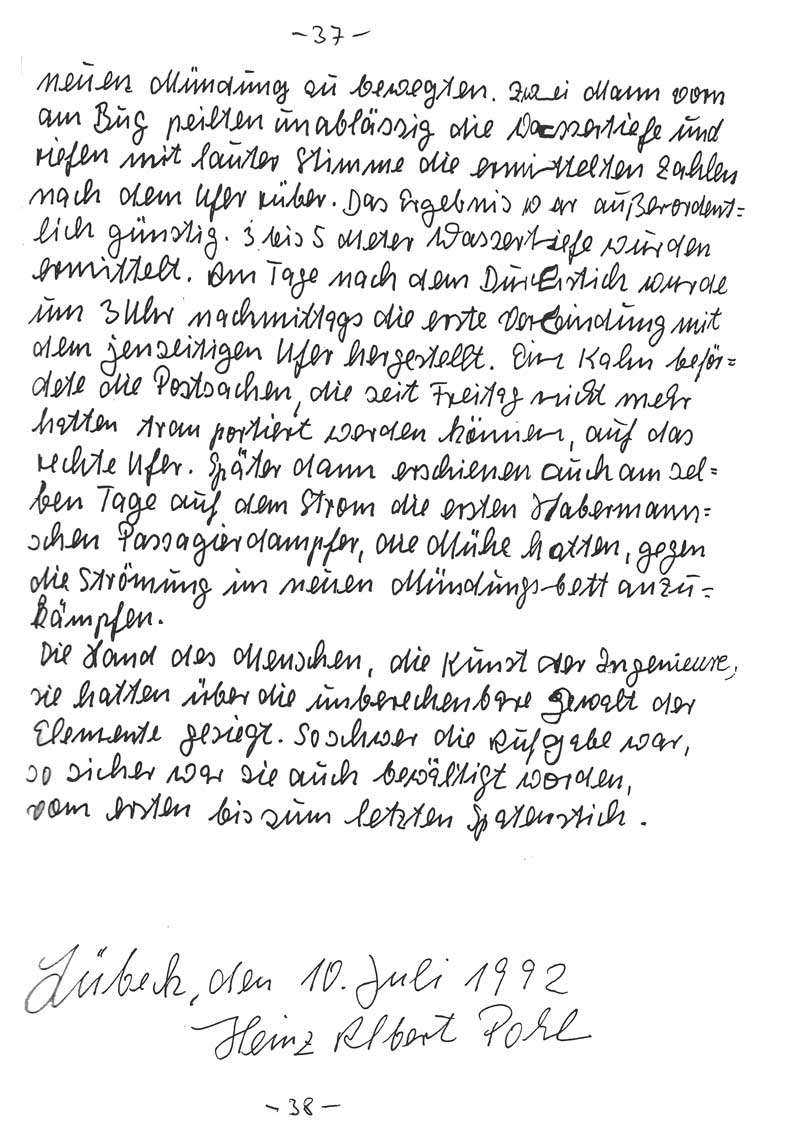 -37-
neuen Mündung zu bewegten. Zwei Mann vorn
am Bug peilten unablässig die Wassertiefe und
riefen mit lauter Stimme die ermittelten Zahlen
nach dem Ufer rüber. Das Ergebnis war außerordent=
lich günstig. 3 bis 5 Meter Wassertiefe wurden
ermittelt. Am Tage nach dem Durchstich wurde
um 3 Uhr nachmittags die erste Verbindung mit
dem jenseitigen Ufer hergestellt. Ein Kahn beför=
dete die Postsachen, die seit Freitag nicht mehr
hatten tran portiert werden können, auf das
rechte Ufer. Später dann erschienen auch am sel=
ben Tage auf dem Strom die ersten Habermann=
schen Passagierdampfer, die Mühe hatten, gegen
die Strömung im neuen Mündungsbett anzu=
kämpfen.
Die Hand des Menschen, die Kunst der Ingenieure,
sie hatten über die unberechenbare Gewalt der
Elemente gesiegt. So schwer die Aufgabe war,
so sicher war sie auch bewältigt worden,
vom ersten bis zum letzten Spatenstich.
Lübeck, den 10. Juli 1992
Heinz Albert Pohl
-38-